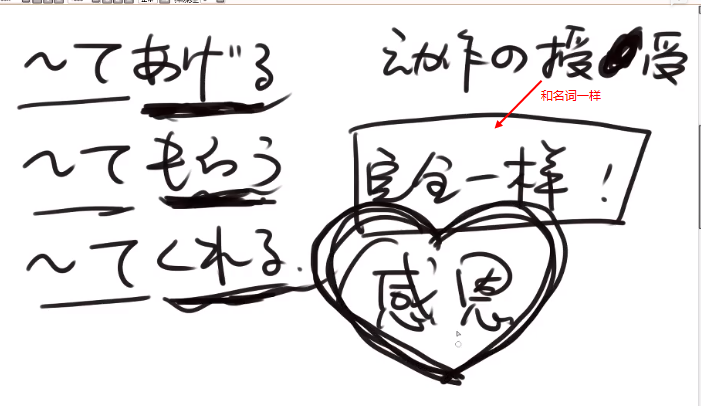 ～てあげる
～てもらう
～てくれる.
动作の授受
和名词一样
完全一样！
感恩